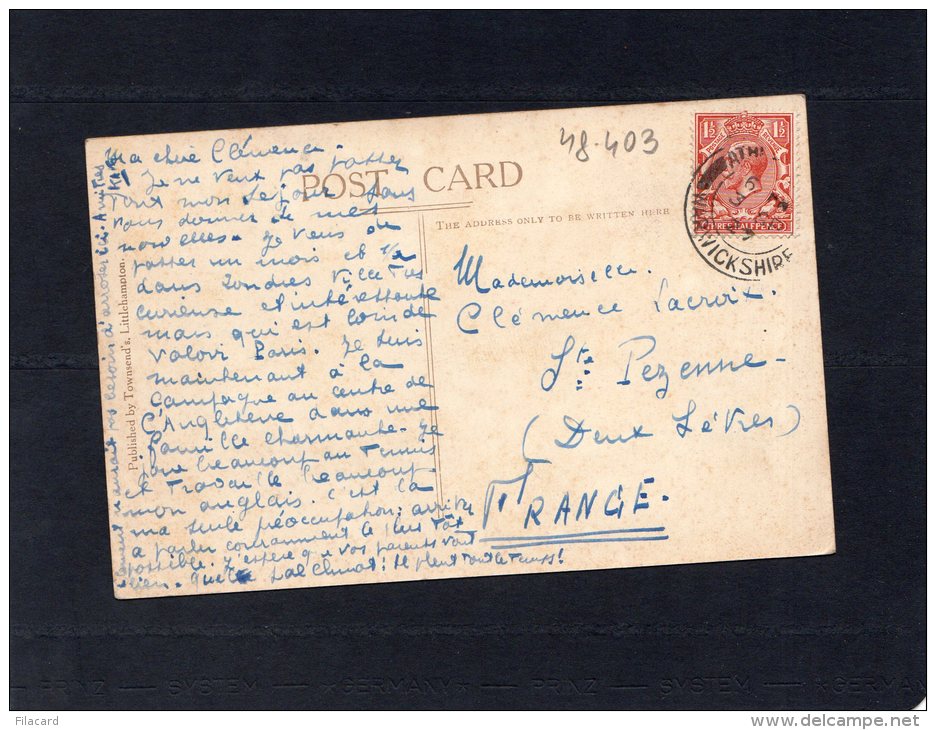 48.403
POST CARD
THE ADDRESS ONLY TO BE WRITTEN HERE
Ma chère Clémence.
Je ne veux pas passer
tout mon séjour sans
vous donner de mes
nouvelles. Je viens de
passer un mois et
dans Londres ville très
curieuse et intéressante
mais qui est loin de
valoir Paris. Je suis
maintenant à la
campagne au centre de
l'Angleterre dans une
famille charmante. Je
joue beaucoup au tennis
et travaille beaucoup
mon anglais. C'est la
ma seule préoccupation; arriver
à parler couramment le plus tôt
possible. J'espère que vos parents vont
bien. Quel sal climat; il pleut tout le temps!
n'aurait pas besoin d'arroser ici. Amitiés
Published by Townsend's, Littlehampton.
Mademoiselle.
Clémence Lacroix.
Ste Pezenne-
(Deux Sèvres)
FRANCE.
1½ 1½
POSTAGE REVENUE
THREE HALFPENCE
WARWICKSHIRE
PRINZ — SYSTEM — GERMANY — PRINZ — SYSTEM — GERMANY
Filacard
www.delcampe.net